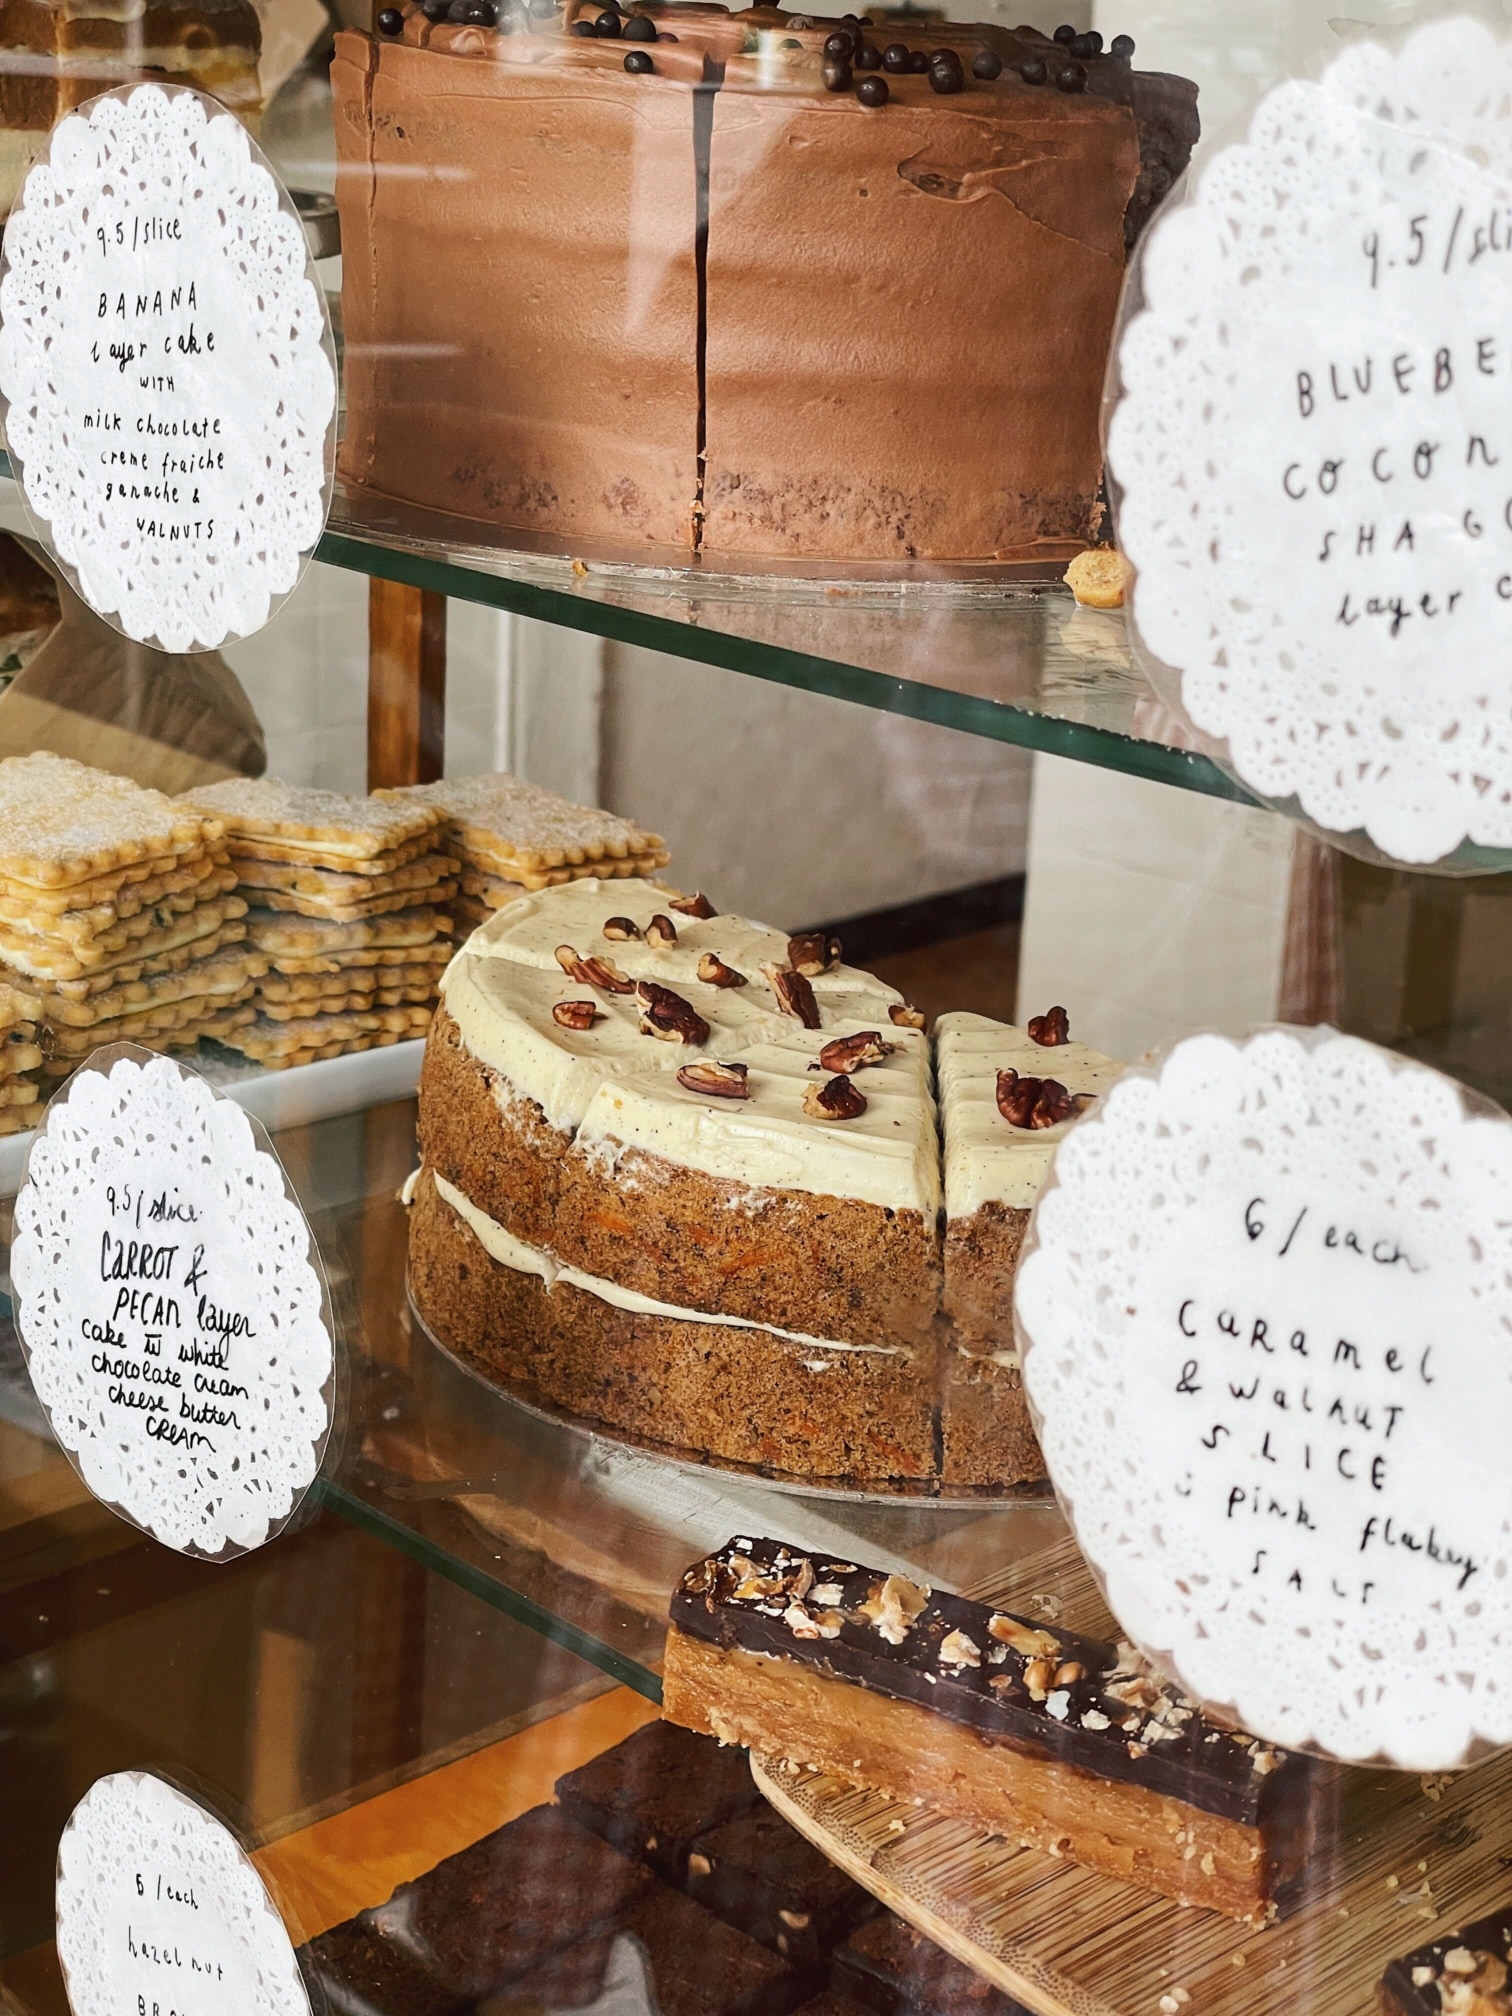 9.5/slice
BANANA
layer cake
WITH
milk chocolate
creme fraiche
ganache &
WALNUTS
9.5/sli
BLUEBE
COCON
SHAG
layer c
9.5/slice.
CARROT &
PECAN layer
cake w white
chocolate cream
cheese butter
CREAM
6/each
CaRamel
& walnuT
SLICE
pink flakey
SALT
/each
hazelnut
BRO